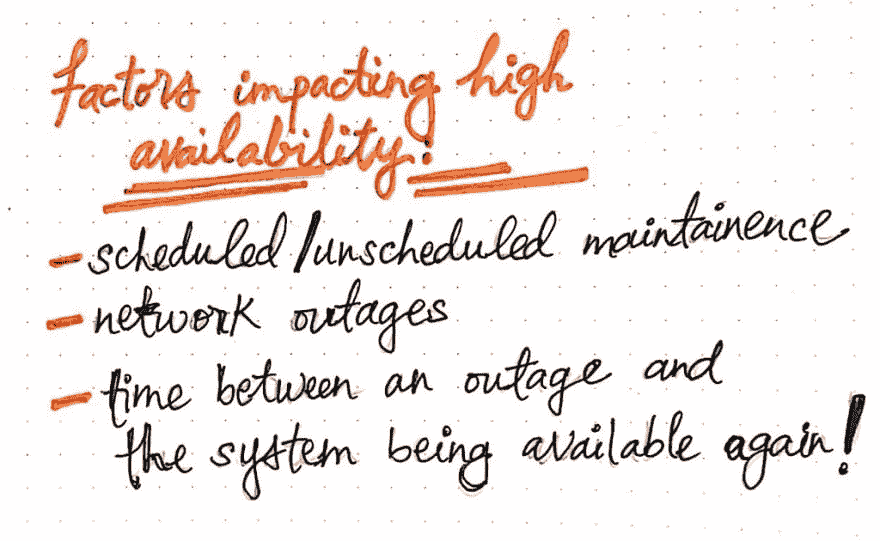 factors impacting high
availability:
- scheduled/unscheduled maintainence
- network outages
- time between an outage and
the system being available again!